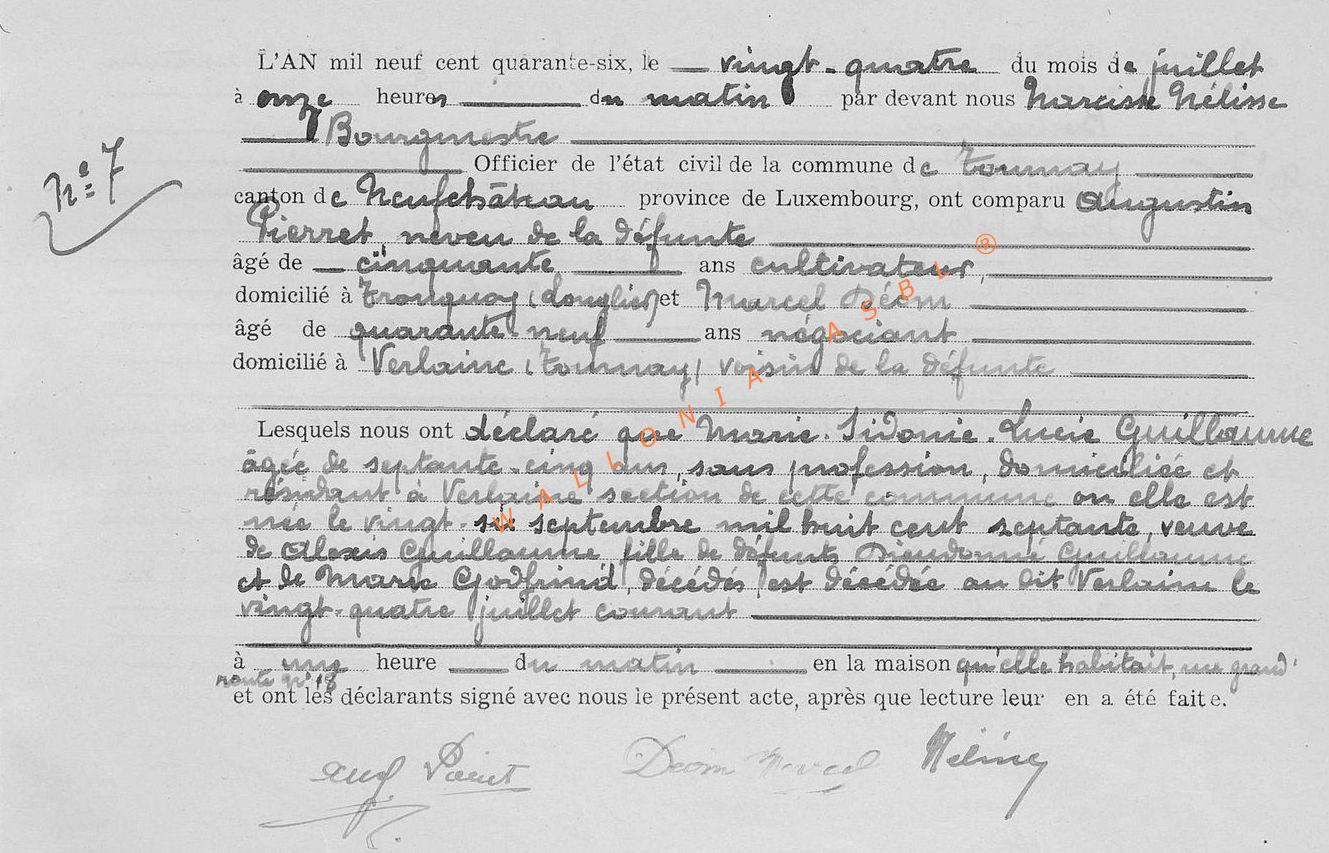 L'AN mil neuf cent quarante-six, le vingt-quatre du mois de juillet
à onze heures du matin par devant nous Narcisse Nélisse
Bourgmestre
Officier de l'état civil de la commune de Tournay
n° 7
canton de Neufchâteau province de Luxembourg, ont comparu Augustin
Pierret, neveu de la défunte
âgé de cinquante ans cultivateur,
domicilié à Tronquoy (Longlier) et Marcel Déom
âgé de quarante-neuf ans négociant
domicilié à Verlaine (Tournay) voisin de la défunte
Lesquels nous ont déclaré que Marie-Sidonie-Lucie Guillaume
âgée de septante-cinq ans, sans profession, domiciliée et
résidant à Verlaine section de cette commune où elle est
née le vingt-six septembre mil huit cent septante, veuve
de Alexis Guillaume fille de défunts Dieudonné Guillaume
et de Marie Godfrind, décédés, est décédée au dit Verlaine le
vingt-quatre juillet courant
à une heure du matin en la maison qu'elle habitait, rue grand'
route n° 18
et ont les déclarants signé avec nous le présent acte, après que lecture leur en a été faite.
Aug Pierret Déom Marcel
WALLONIA ASBL ®